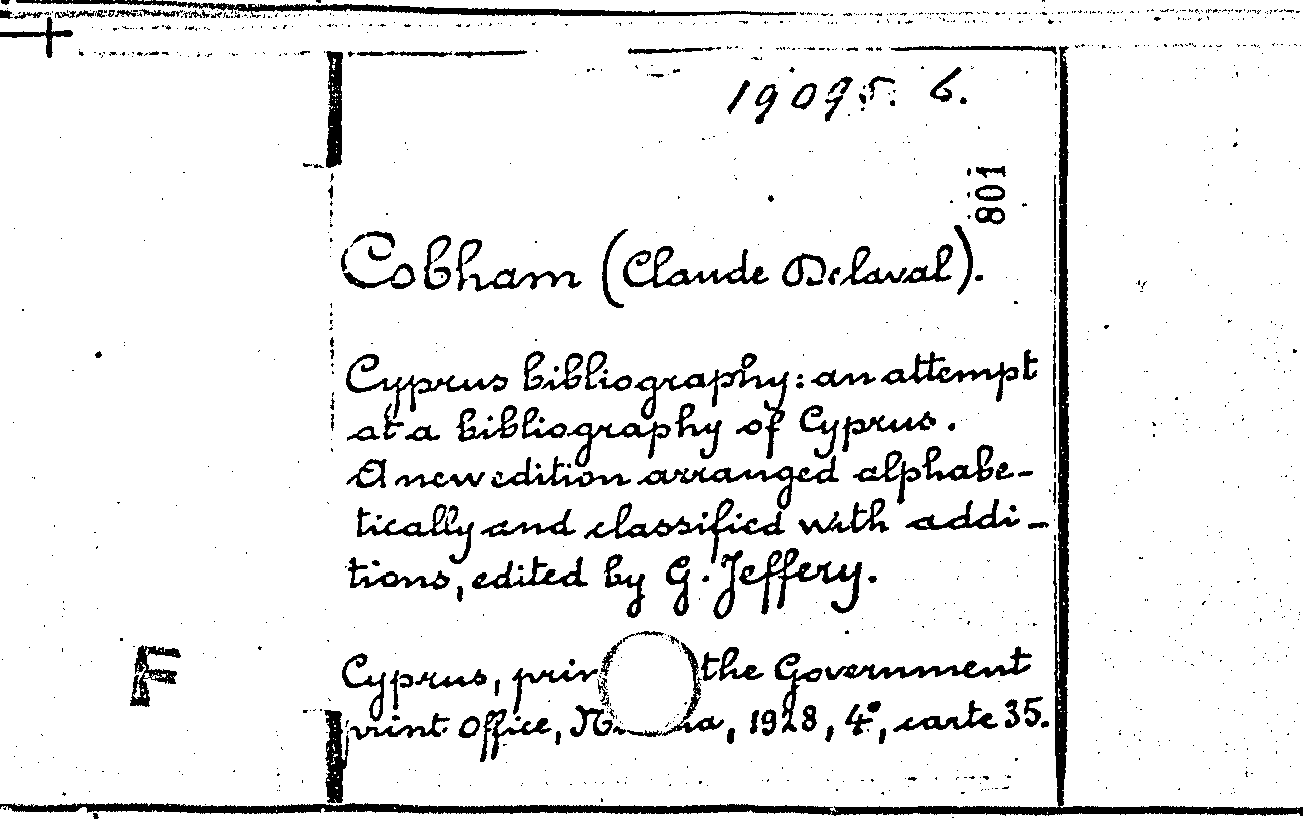 19095. 6.
801
Cobham (Claude Delaval).
Cyprus bibliography: an attempt
at a bibliography of Cyprus.
A new edition arranged alphabe-
tically and classified with addi-
tions, edited by G. Jeffery.
F
Cyprus, the Government
print Office, 1928, 4°, carte 35.